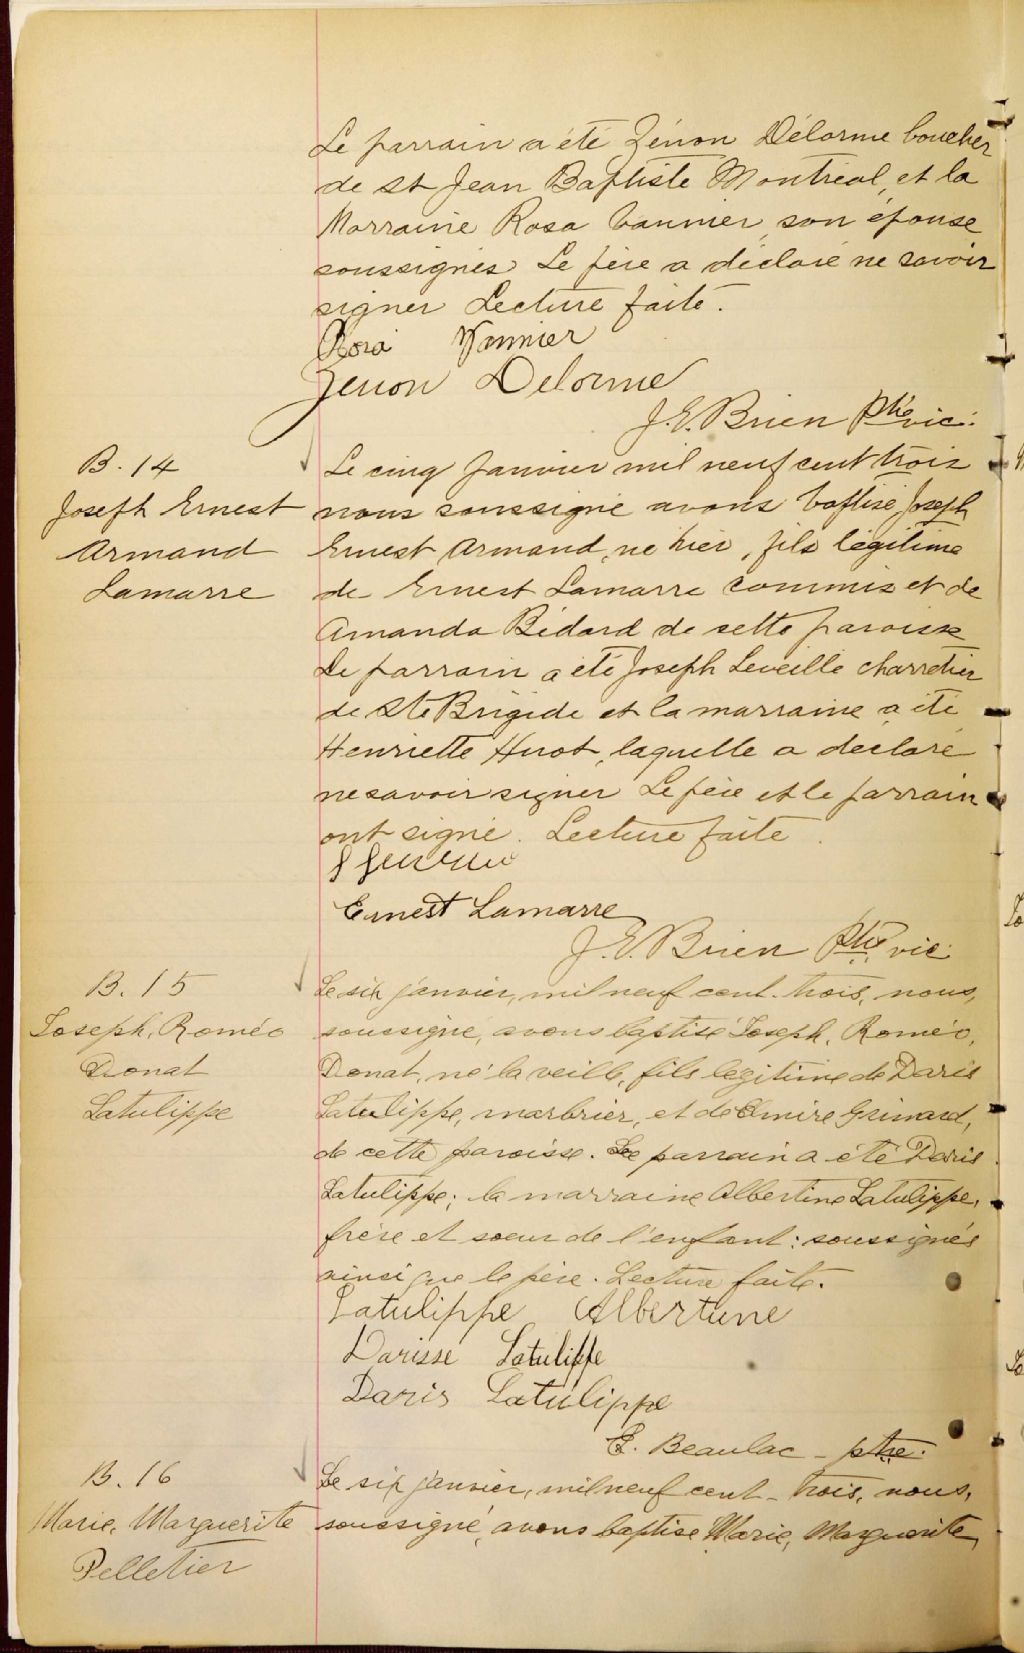 Le parrain a été Zénon Délorme boucher
de St Jean Baptiste Montréal, et la
Marraine Rosa Vannier, son épouse
soussignés Le père a déclaré ne savoir
signer Lecture faite.
Rosa Vannier
Zenon Delorme
J. E. Brien ptre vic.
B. 14
Joseph Ernest
Armand
Lamarre
Le cinq Janvier mil neuf cent trois
nous soussigné avons baptisé Joseph
Ernest Armand, né hier, fils légitime
de Ernest Lamarre commis et de
Amanda Bédard de cette paroisse
Le parrain a été Joseph Leveillé charretier
de Ste Brigide et la marraine a été
Henriette Huot, laquelle a déclaré
ne savoir signer Le père et le parrain
ont signé. Lecture faite.
Ernest Lamarre
J. E. Brien ptre vic.
B. 15
Joseph, Roméo
Donat
Latulippe
Le six janvier, mil neuf cent-trois, nous,
soussigné, avons baptisé Joseph, Roméo,
Donat, né la veille, fils légitime de Daris
Latulippe, marbrier, et de Elmire Grimard,
de cette paroisse. Le parrain a été Daris
Latulippe; la marraine Albertine Latulippe,
frère et soeur de l'enfant: soussignés
ainsi que le père. Lecture faite.
Latulippe Albertine
Darisse Latulippe
Daris Latulippe
E. Beaulac - ptre.
B. 16
Marie, Marguerite
Pelletier
Le six janvier, mil neuf cent-trois, nous,
soussigné, avons baptisé Marie, Marguerite,